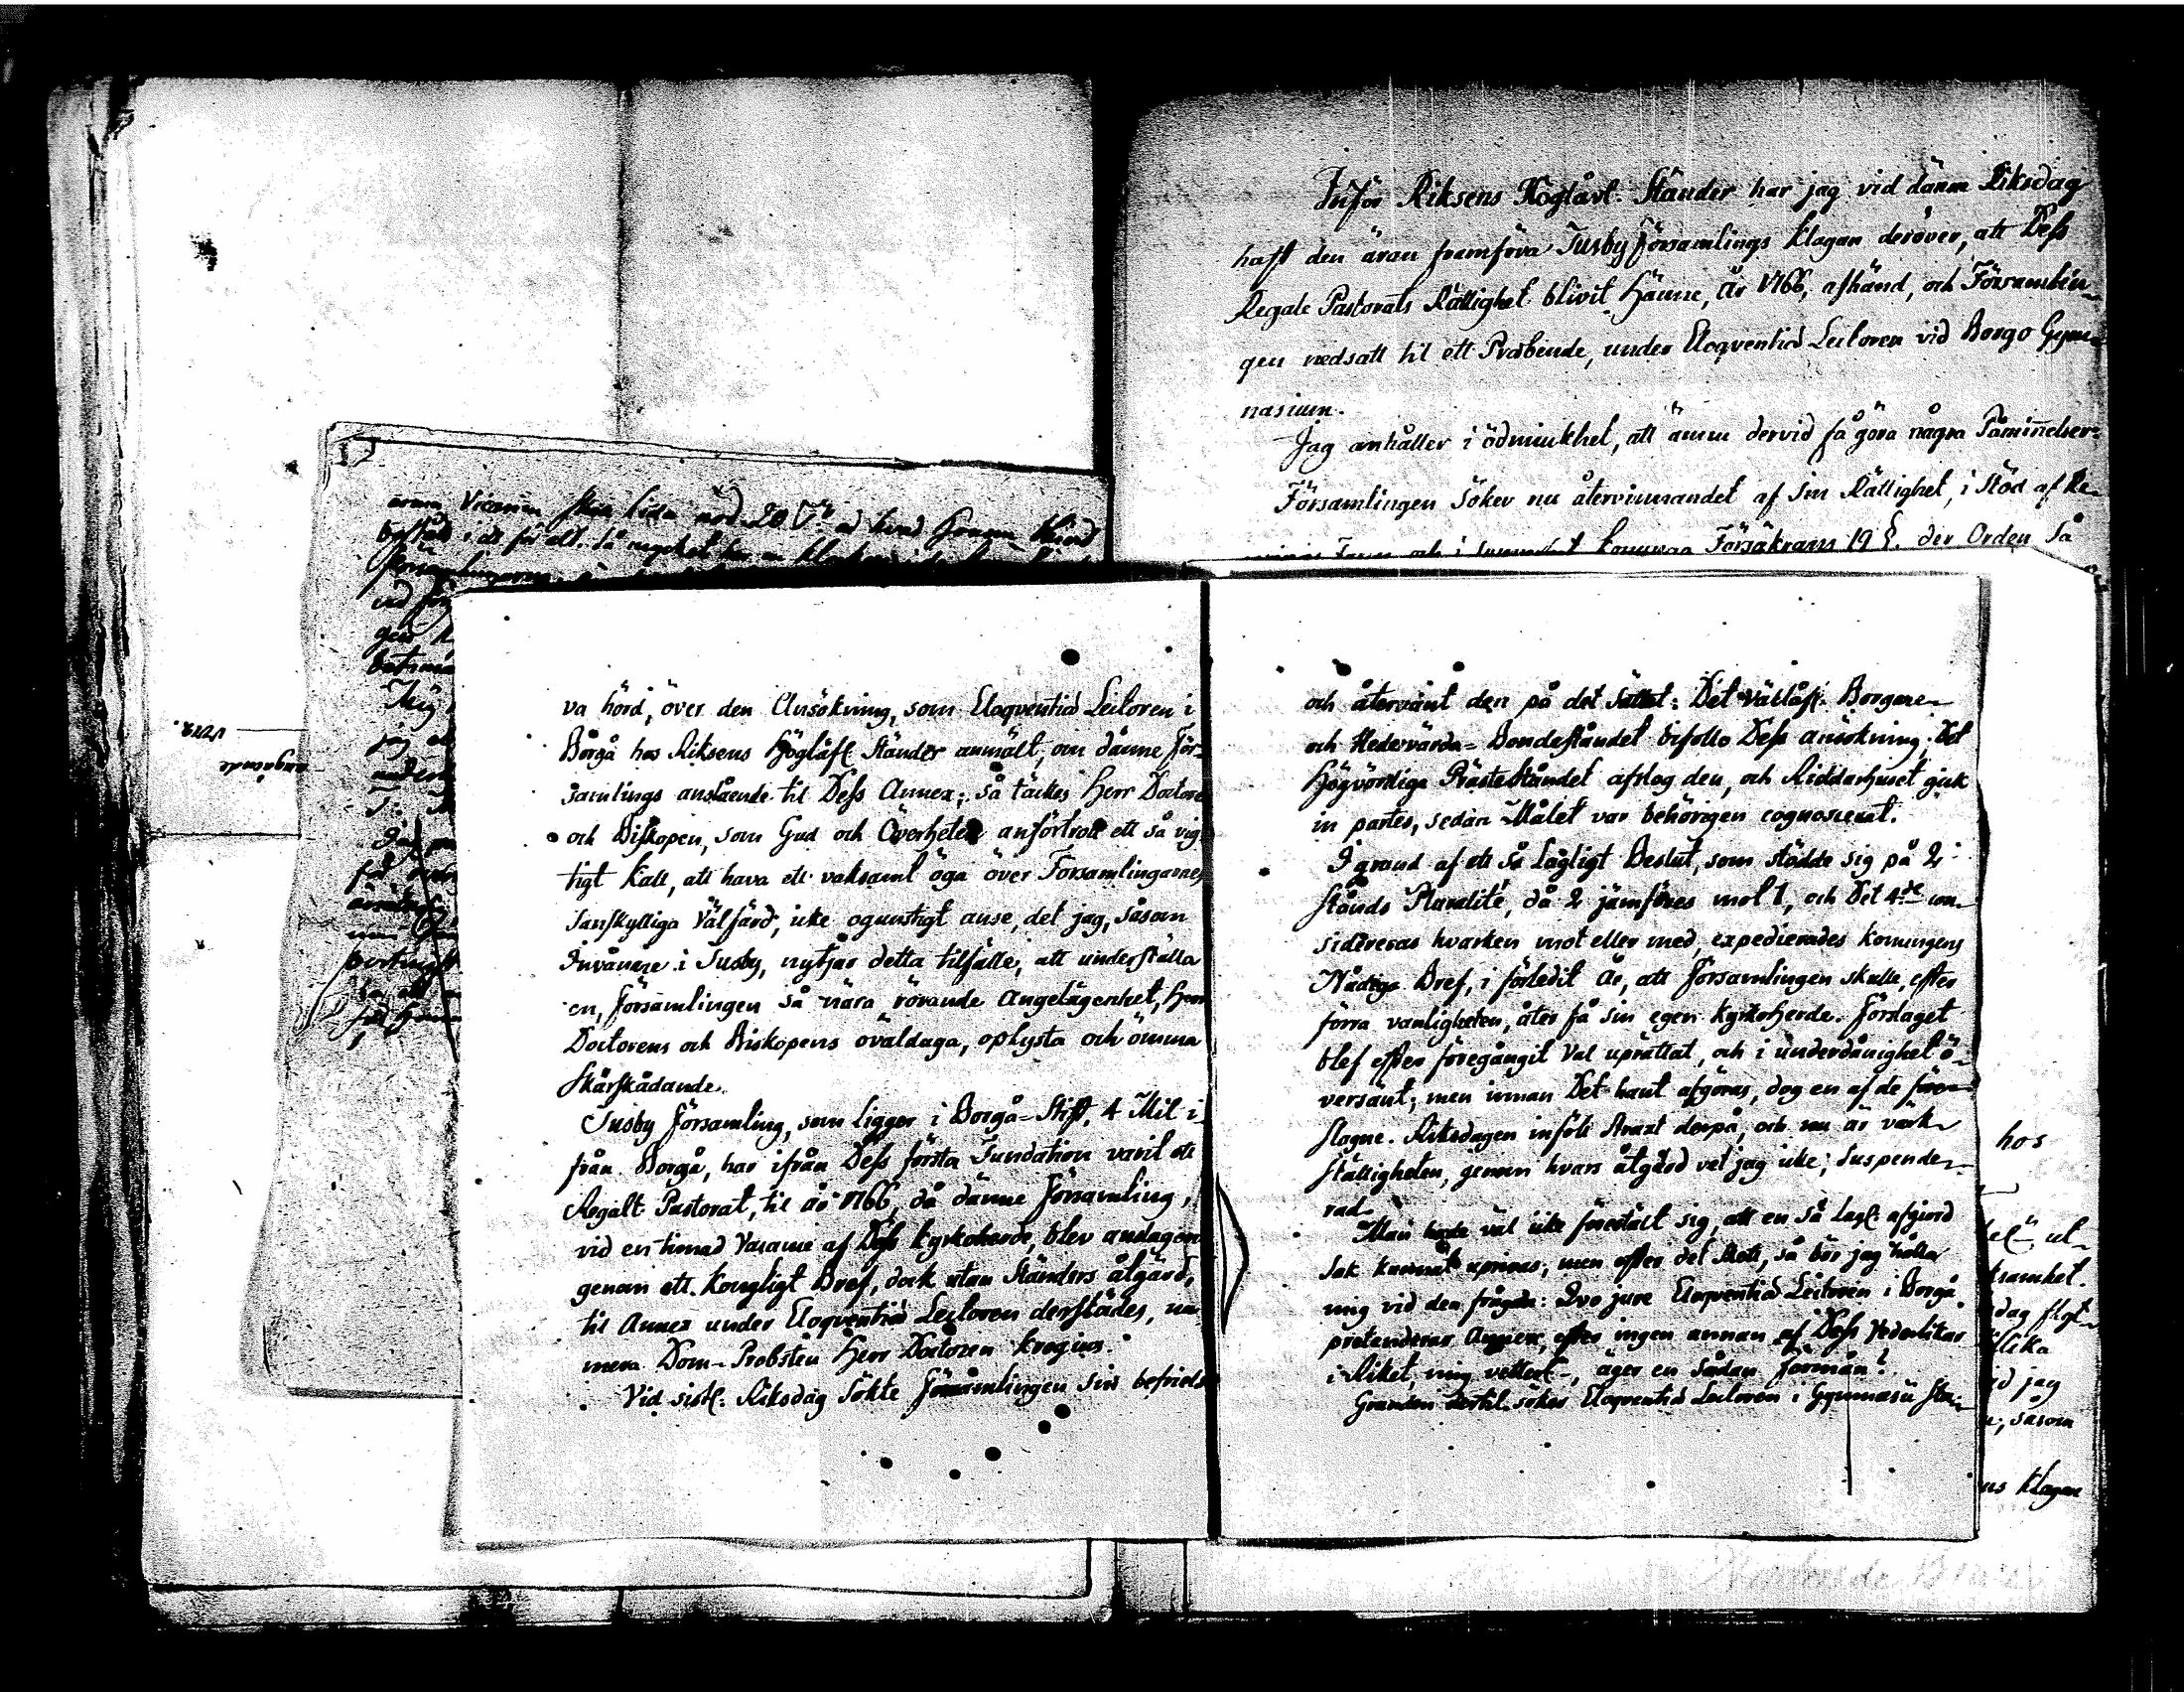 Inför Riksens Höglåvl. Ständer har jag vid dänna Riksdag
haft den äran framföra Tusby Församlings klagan deröver, att Dess
Regale Pastorats Rättighet blivit Hänne, År 1766, afhänd, och Församlin-
gen nedsatt til ett Præbende, under Eloqventiæ Lectoren vid Borgo Gym-
nasium.
Jag anhåller i ödmiukhet, att ännu dervid få göra några Påminnelser.
Församlingen Söker nu återvinnandet af Sin Rättighet, i Stöd af Re-
Försäkrans 19 §. der Orden Så
va hörd, över den Ansökning, som Eloqventiæ Lectoren i
Borgå hos Riksens Höglåfl Ständer anmält, om dänne För-
samlings anslående til Dess Annex; Så täcktes Herr Doctorn
och Biskopen, som Gud och Överheten anförtrott ett så vig-
tigt kall, att hava ett vaksamt öga över Församlingarnes
Sanskylliga Välfärd, icke ogunstigt anse, det jag, såsom
Invånare i Tusby, nytjar detta tilfälle, att underställa
en, Församlingen så nära rörande Angelägenhet, Herr
Doctorens och Biskopens ovälduga, oplysta och ömma
Skärskådande.
Tusby Församling, som ligger i Borgå-Stift, 4 Mil i-
från Borgå, har ifrån Dess första Fundation varit ett
Regalt Pastorat, til år 1766, då dänne Församling,
vid en timad Vacance af Dess Kyrkoherde, blev andragen
genom ett Kongligt Bref, dock utan Ständers åtgärd,
til Annex under Eloqventiæ Lectoren derstädes, nu-
mera Dom-Probsten Herr Doctoren Krogius.
Vid sistl. Riksdag Sökte Församlingen sin befrielse
och återvant den på det Sättet: Det Vällåfl. Borgare-
och Hedervärda-Bondeståndet biföllo Dess ansökning; Det
Högvördiga Prästeståndet afslog den, och Riddarhuset gick
in partes, sedan Målet var behörigen cognoscerat.
I grund af ett så Lagligt Beslut, som stödde sig på 2
Stånds Pluralité, då 2 jämföres mot 1, och Det 4de con-
sidereras hvarken mot eller med, expedierades konungens
Nådige Bref, i förledit År, att Församlingen skulle, efter
förra vanligheten, åter få sin egen Kyrkoherde. Förslaget
blef efter föregångit Val uprättat, och i underdånighet ö-
versänt; men innan Det hant afgöras, dog en af de före-
slagne. Riksdagen inföll straxt derpå, och nu är värk-
ställigheten, genom hvars åtgärd vet jag icke; Suspende-
rad.
Man hade väl icke förestält sig, att en så Lagl. afgiord
Sak kunnat uprivas; men efter det skett, så bör jag hålla
mig vid den frågan: Qvo jure Eloqventiæ Lectoren i Borgå
prætenderar Annex, efter ingen annan af Dess Vederlikar
i Riket, mig vetterl-, äger en sådan Förmån?
Grunden dertil söker Eloqventiæ Lectoren i Gymnasii Sta-
angående
hos
ul-
jag
såsom
klagan